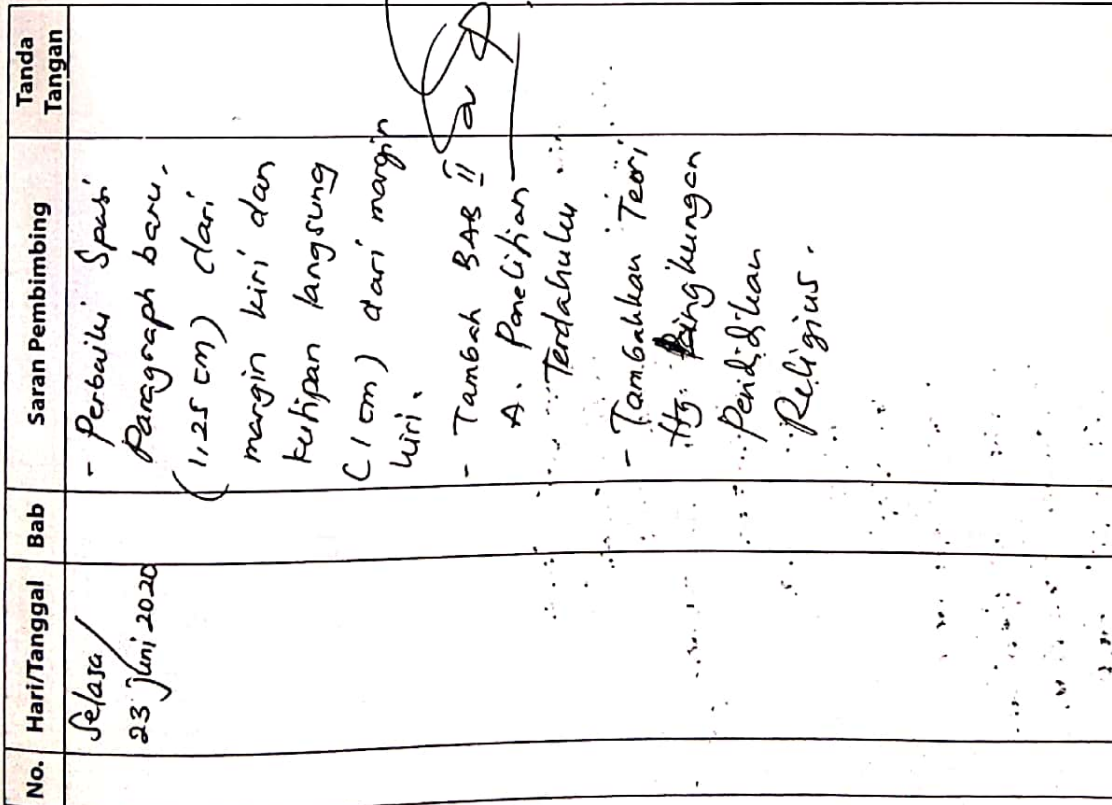 No. Hari/Tanggal Bab Saran Pembimbing Tanda Tangan
Selasa/
23 juni 2020
- Perbaiki Spasi
Paragraph baru.
(1,25 cm) dari
margin kiri dan
kutipan langsung
(1 cm) dari margin
kiri.
- Tambah BAB II
A. Penelitian
Terdahulu
- Tambahkan Teori
ttg Lingkungan
Pendidikan
Religius.